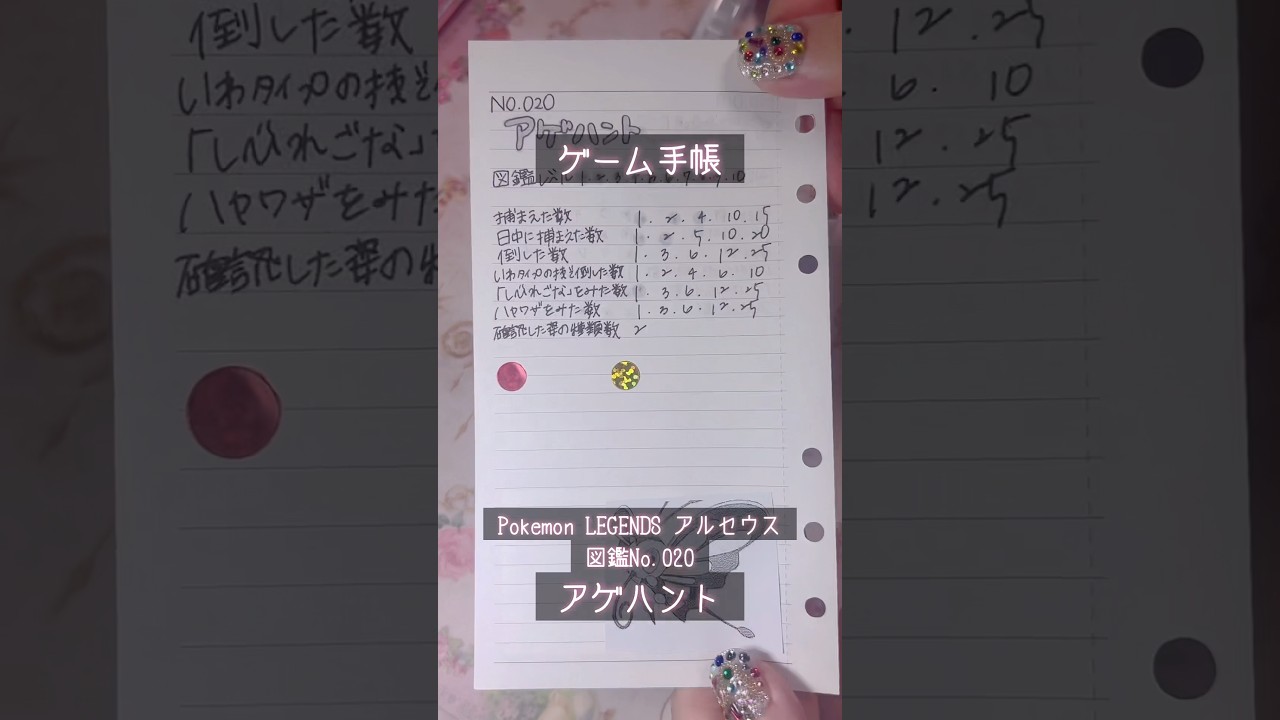 NO.020
アゲハント
ゲーム手帳
図鑑レベル 1.2.3.4.5.6.7.8.9.10
捕まえた数 1.2.4.10.15
日中に捕まえた数 1.2.5.10.20
倒した数 1.3.6.12.25
いわタイプの技で倒した数 1.2.4.6.10
「しびれごな」をみた数 1.3.6.12.25
ハヤワザをみた数 1.3.6.12.25
確認した姿の種類数 2
Pokemon LEGENDS アルセウス
図鑑No.020
アゲハント
倒した数 12.25
いわタイプの技で 6.10
「しびれごな」 12.25
ハヤワザをみた 12.25
確認した姿の種